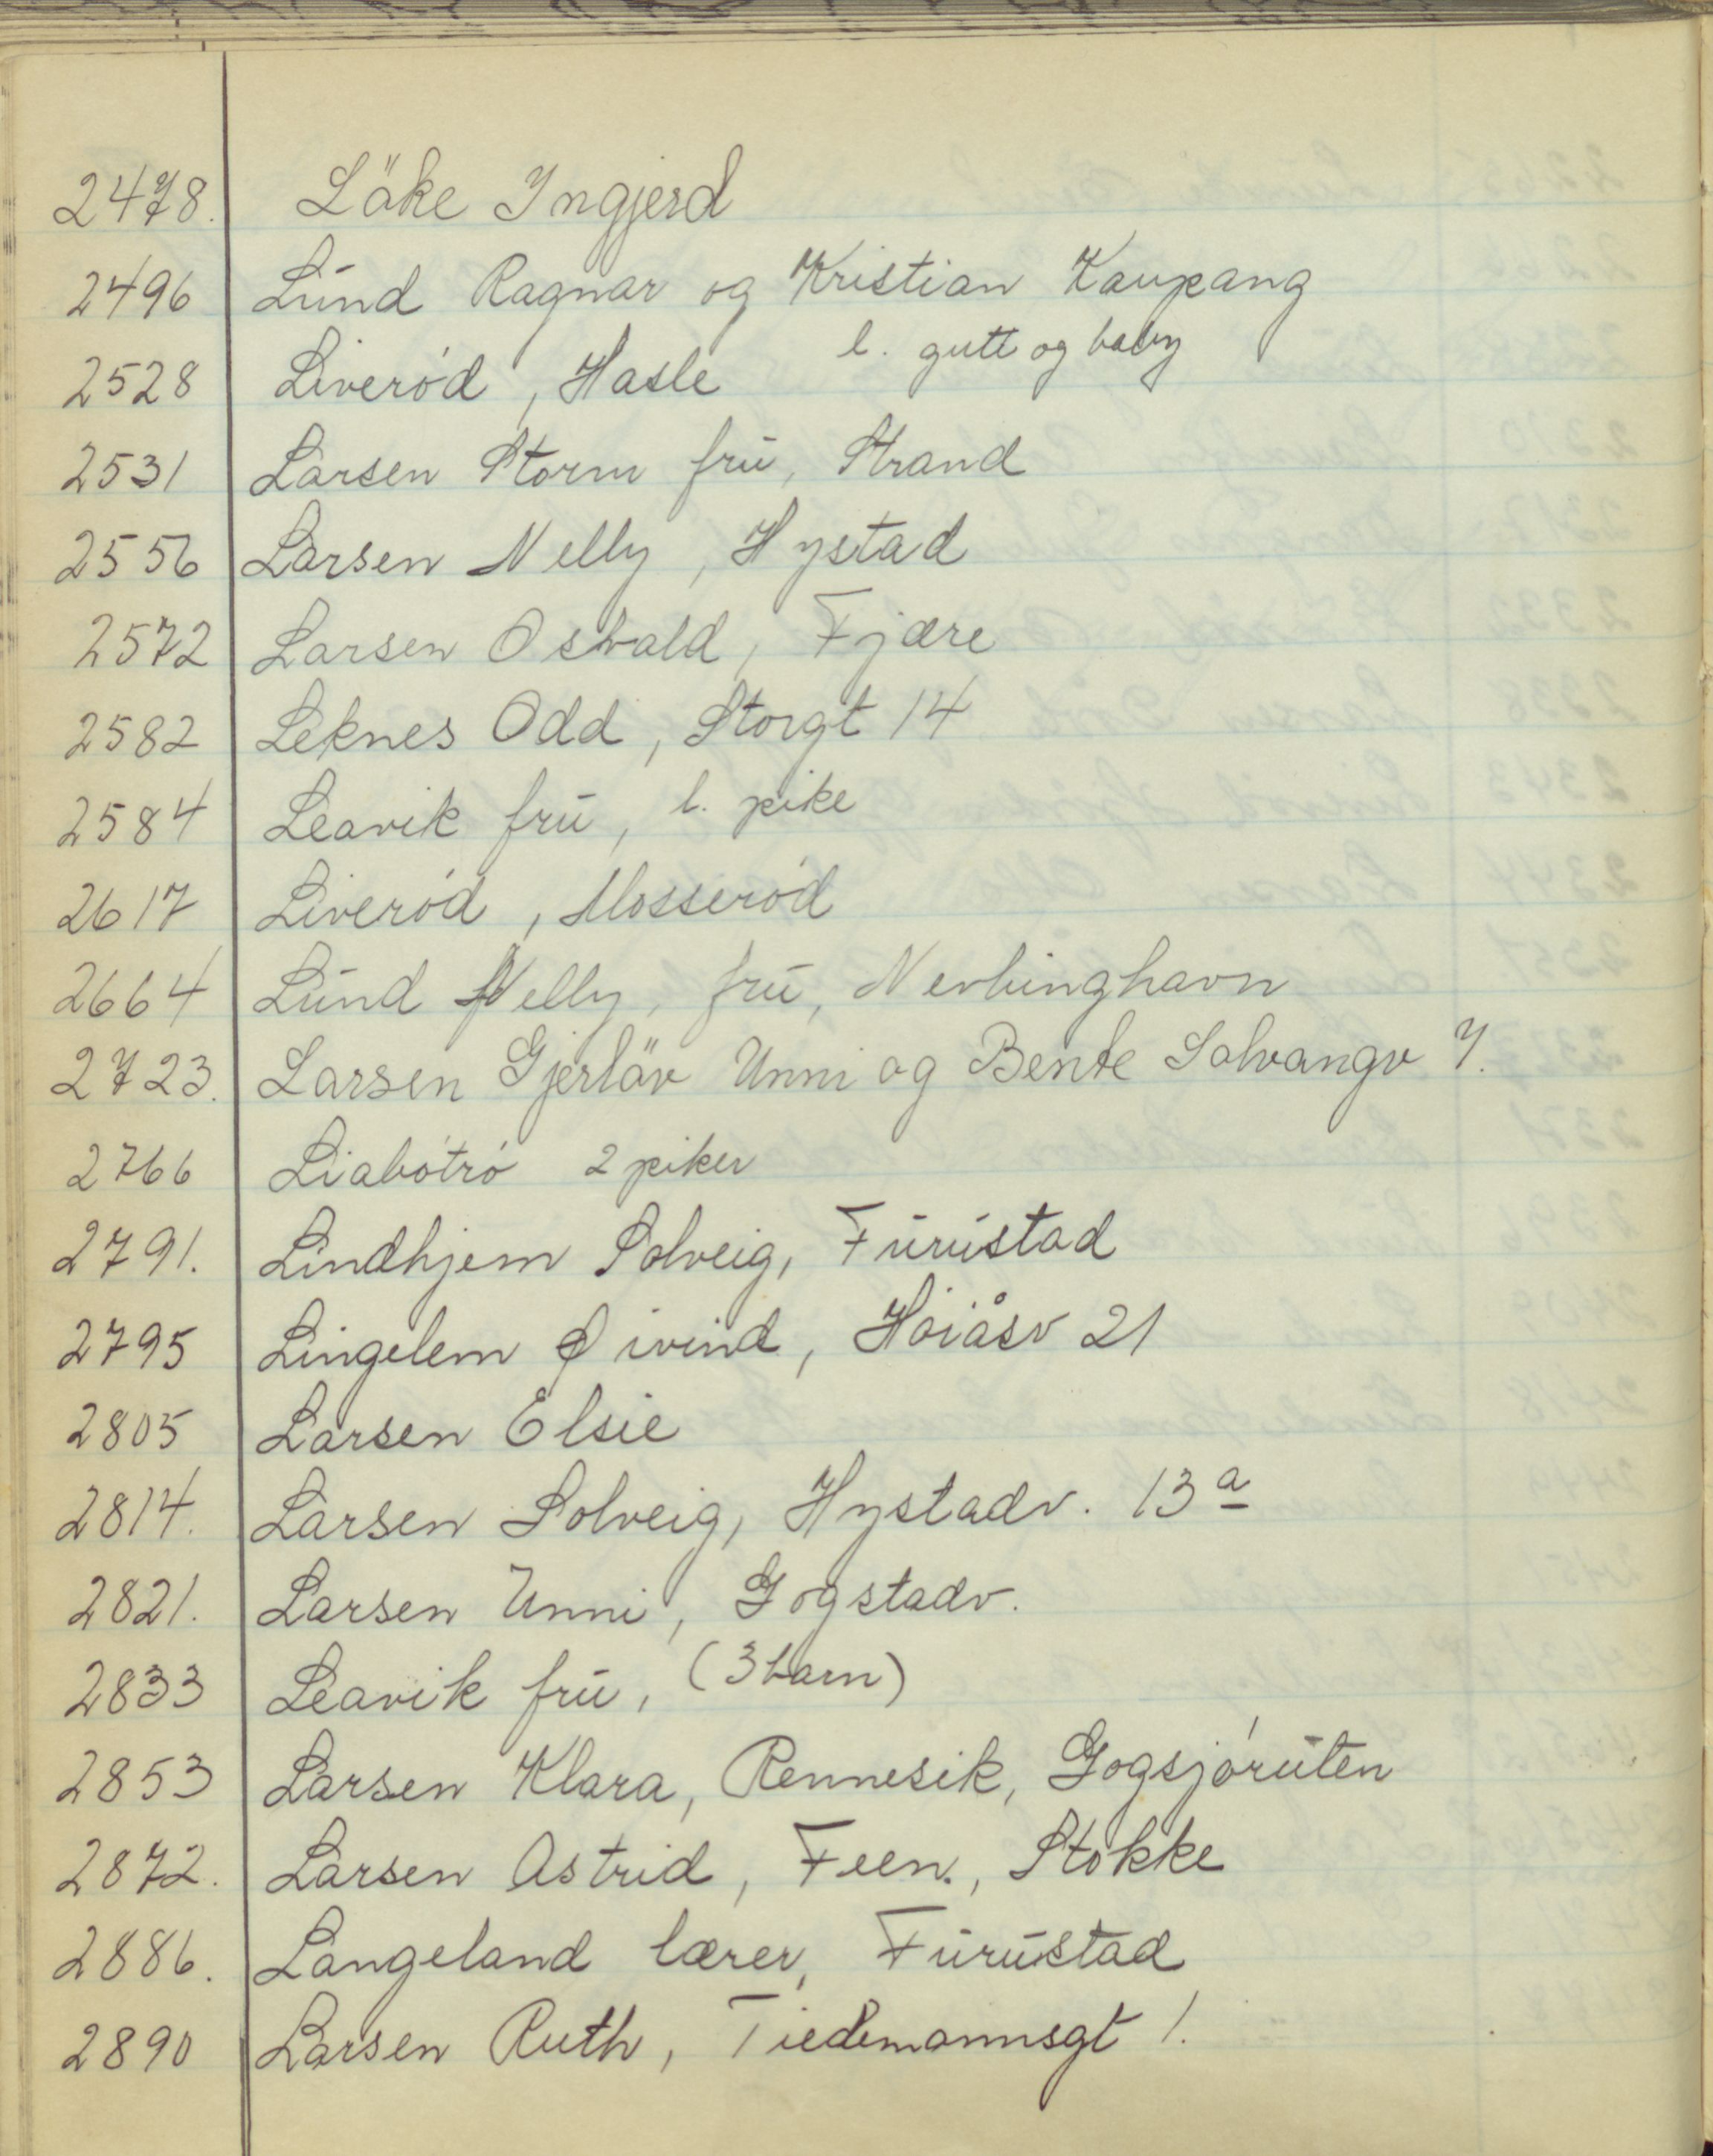 2478. Läke Yngjerd
2496 Lund Ragnar og Kristian Kaupang
l. gutt og baby
2528 Liveród, Hasle
2531 Larsen Storm fru, Strand
2556 Larsen Nelly, Hystad
2572 Larsen Osvald, Fjære
2582 Leknes Odd, Storgt 14
2584 Leavik fru, l. pike
2617 Liveród, Mosseród
2664 Lund Nelly, fru, Nevlinghavn
2723. Larsen Gjerläv Unni og Bente Solvangv 7.
2766 Liabótró 2 piker
2791. Lindhjem Solveig, Furustad
2795 Lingelem Øivind, Hóiåsv 21
2805 Larsen Elsie
2814. Larsen Solveig, Hystadv. 13 a
2821. Larsen Unni, Gogstadv.
2833 Leavik fru, (3 barn)
2853 Larsen Klara, Rennesik, Gogsjóruten
2872. Larsen Astrid, Feen., Stokke
2886. Langeland lærer, Furustad
2890 Larsen Ruth, Tiedemannsgt 1.